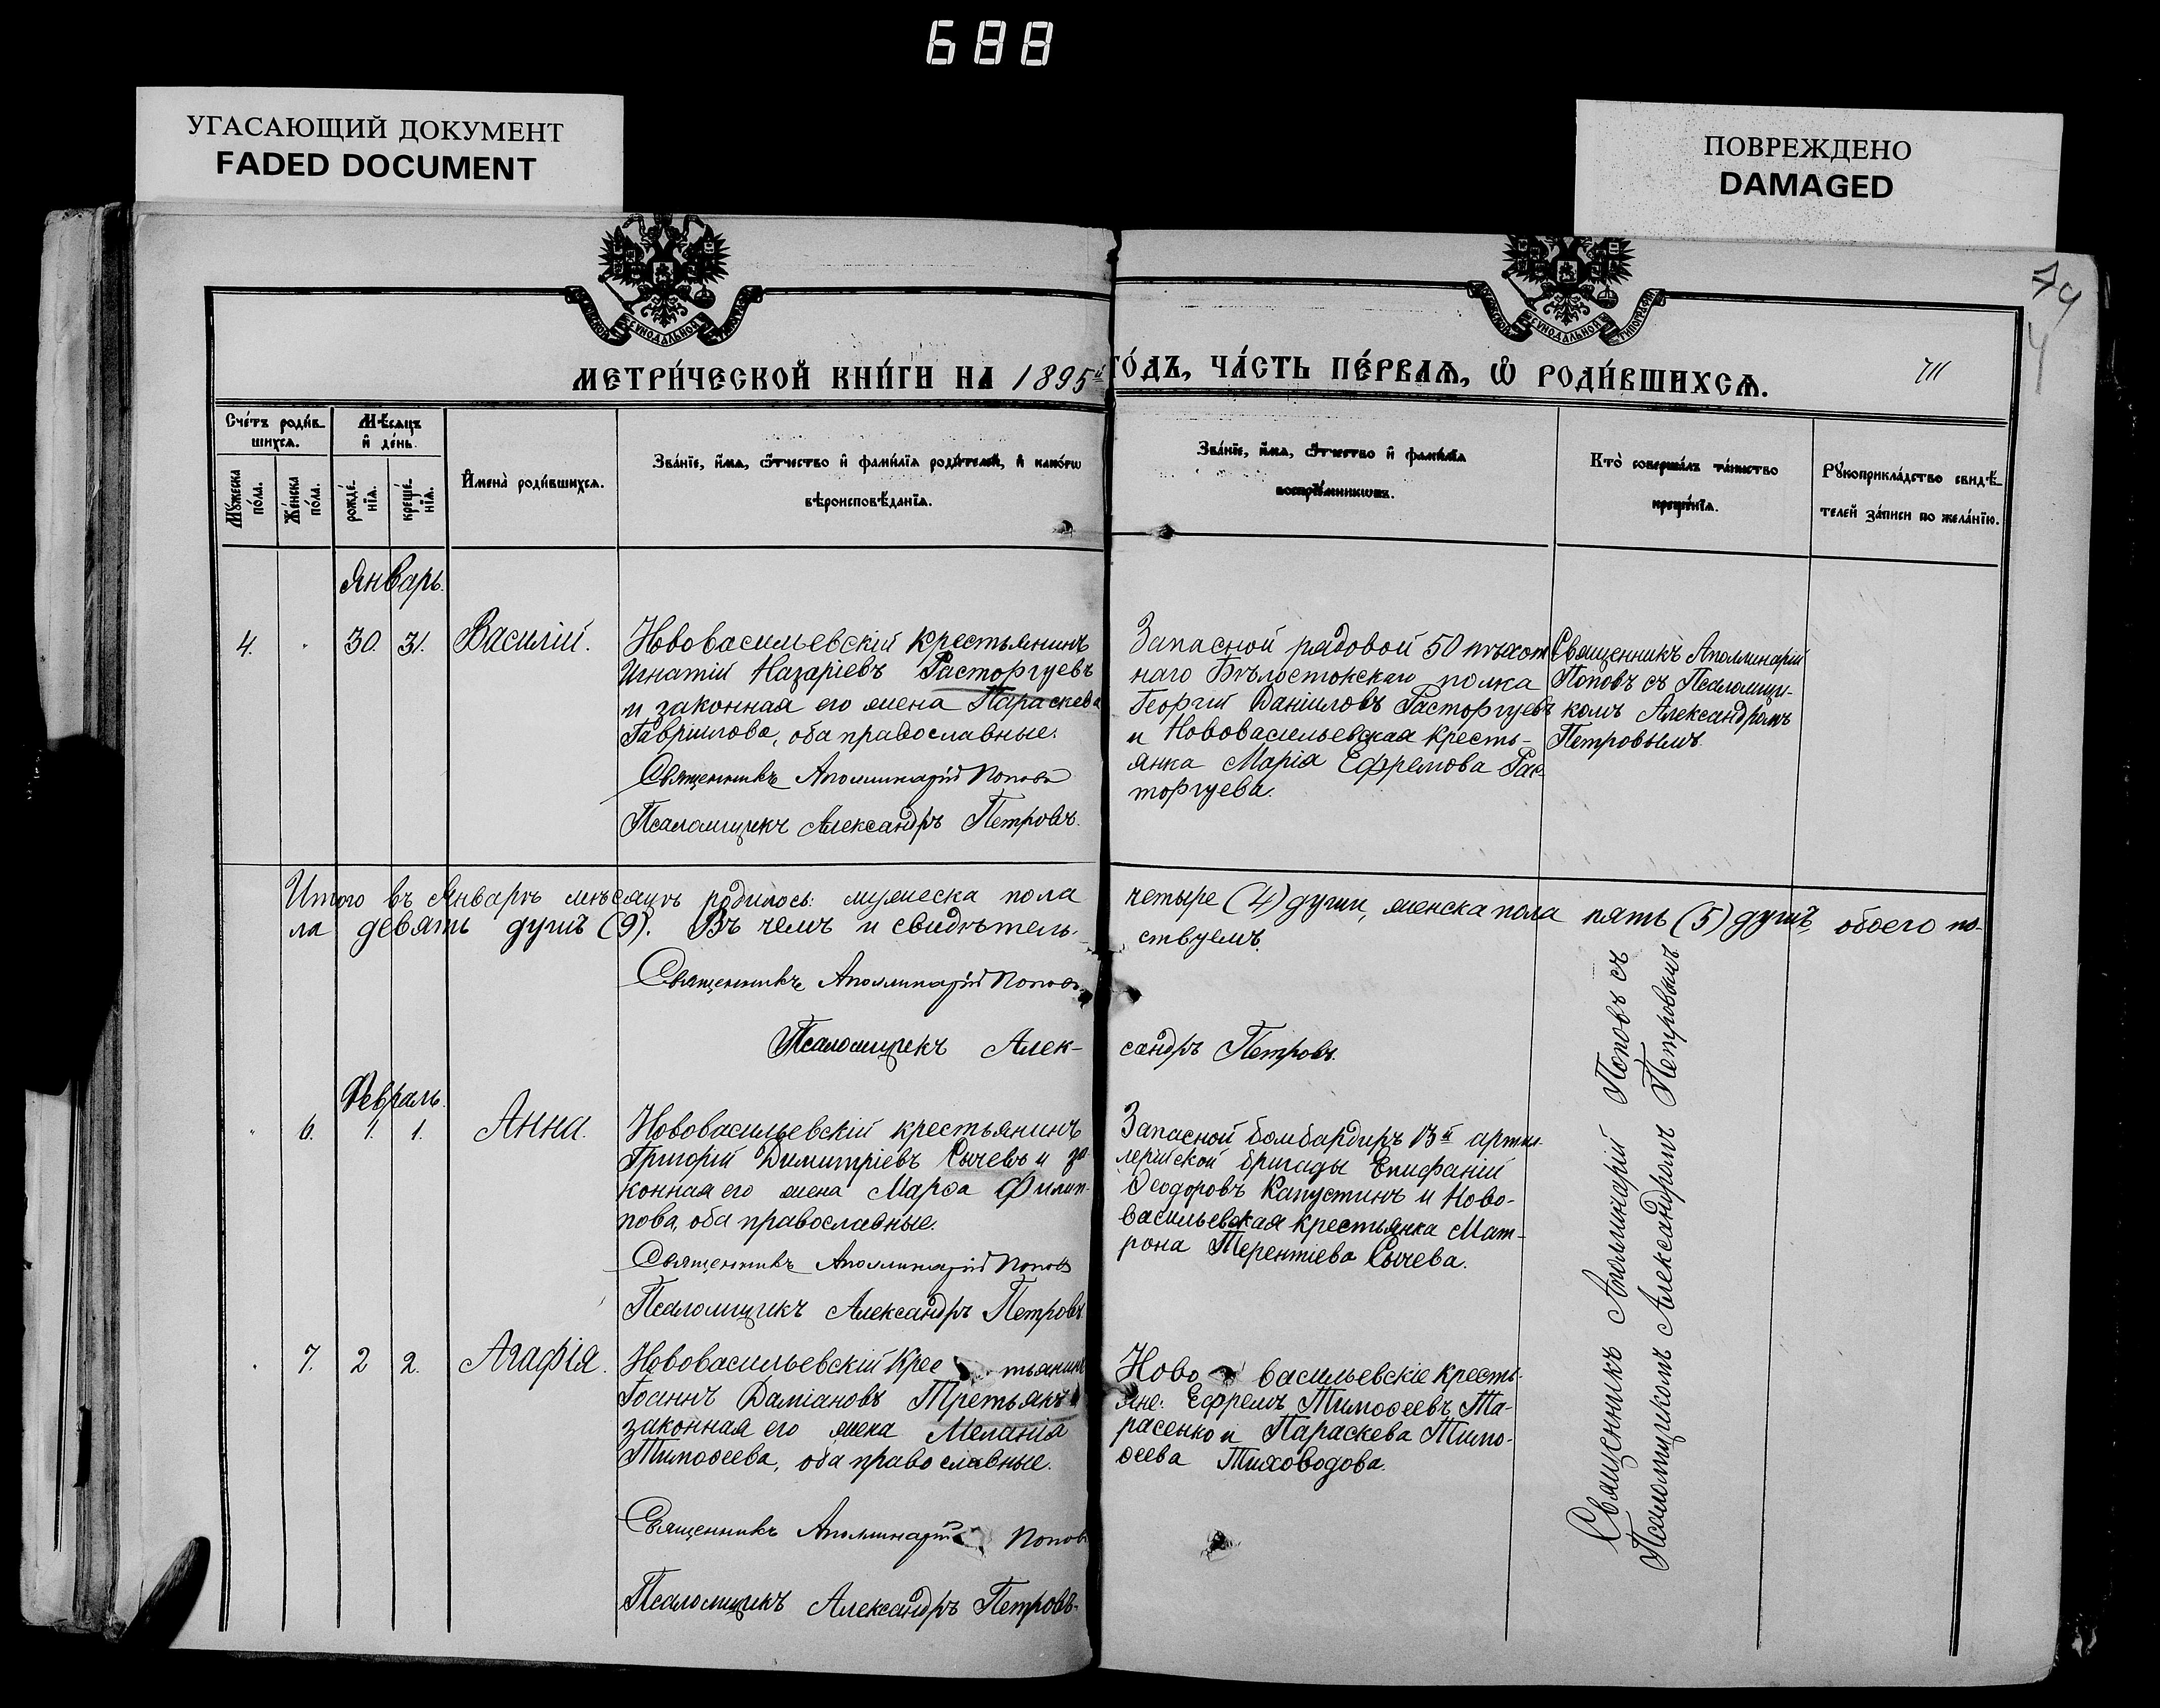 688
УГАСАЮЩИЙ ДОКУМЕНТ
FADED DOCUMENT
ПОВРЕЖДЕНО
DAMAGED
74
711
МЕТРИ́ЧЕСКОЙ КНИ́ГИ НА 1895й ГО́ДЪ, ЧА́СТЬ ПЕ́РВАѦ, Ѡ РОДИ́ВШИХСѦ.
Сче́тъ роди́в-
шихсѧ.
Мѣ́сѧцъ
и҆ де́нь.
Мꙋ́жеска
по́ла.
Же́нска
по́ла.
рожде́-
нїѧ.
креще́-
нїѧ.
И҆мена̀ роди́вшихсѧ.
Зва́нїе, и҆́мѧ, ѻ҆́тчество и҆ фами́лїѧ роди́телей, и҆ како́гѡ
вѣроисповѣ́данїѧ.
Зва́нїе, и҆́мѧ, ѻ҆́тчество и҆ фами́лїѧ
воспрїе́мникѡвъ.
Кто̀ соверша́лъ та́инство
креще́нїѧ.
Рꙋкоприкла́дство свидѣ́-
телей за́писи по жела́нїю.
Январь.
4. " 30. 31. Василій.
Нововасильевскій крестьянинъ
Игнатій Назаріевъ Расторгуевъ
и законная его жена Параскева
Гавріилова, оба православные.
Священникъ Аполлинарій Поповъ
Псаломщикъ Александръ Петровъ.
Запасной рядовой 50 пѣхот
наго Бѣлостокскаго полка
Георгій Даніиловъ Расторгуевъ
и Нововасильевская кресть-
янка Марія Ефремова Рас-
торгуева.
Священникъ Аполлинарій
Поповъ съ Псаломщи-
комъ Александромъ
Петровымъ.
Итого въ Январѣ мѣсяцѣ родилось: мужеска пола четыре (4) души, женска пола пять (5) душъ, обоего по-
ла девять душъ (9). Въ чемъ и свидѣтель- ствуемъ.
Священникъ Аполлинарій Поповъ
Псаломщикъ Алек- сандръ Петровъ.
Февраль.
" 6. 1. 1. Анна.
Нововасильевскій крестьянинъ
Григорій Димитріевъ Сычевъ и за-
конная его жена Марѳа Филип-
пова, оба православные.
Священникъ Аполлинарій Поповъ
Псаломщикъ Александръ Петровъ
Запасной бомбардиръ 13й артил-
лерійской бригады Епифаній
Ѳеодоровъ Капустинъ и Ново-
васильевская крестьянка Мат-
рона Терентіева Сычева.
" 7. 2 2. Агафія.
Нововасильевскій Крес тьянинъ
Іоаннъ Даміановъ Третьякъ и
законная его жена Меланія
Тимоѳеева, оба православные.
Священникъ Аполлинарій Поповъ
Псаломщикъ Александръ Петровъ.
Ново васильевскіе кресть-
яне: Ефремъ Тимоѳеевъ Та-
расенко и Параскева Тимо-
ѳеева Тиховодова.
Священникъ Аполлинарій Поповъ съ
Псаломщикомъ Александромъ Петровымъ